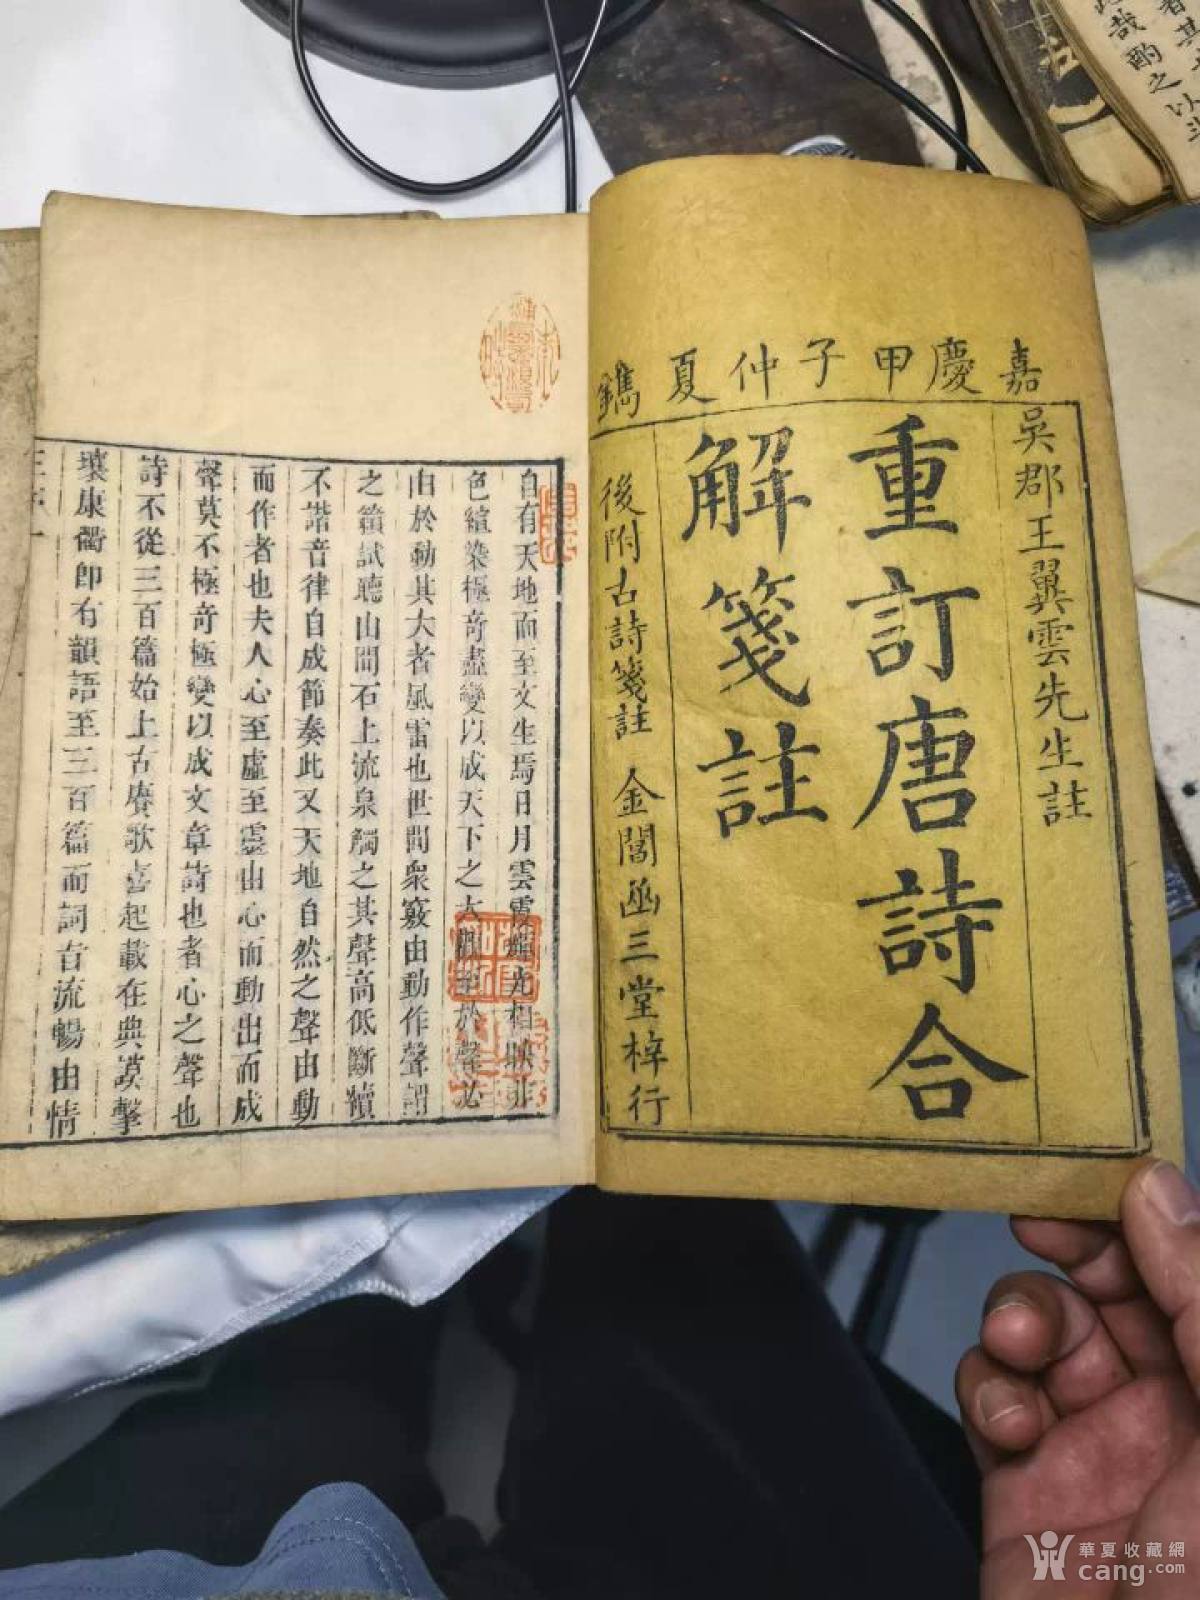 嘉慶甲子仲夏鐫
吳郡王翼雲先生註
重訂唐詩合
解箋註
後附古詩箋註 金閶函三堂梓行
自有天地而至文生焉日月雲霞燿光相映非
色繪染極奇盡變以成天下之大觀至於聲必
由於動其大者風雷也世間衆竅由動作聲謂
之籟試聽山間石上流泉觸之其聲高低斷續
不諧音律自成節奏此又天地自然之聲由動
而作者也夫人心至虛至靈由心而動出而成
聲莫不極奇極變以成文章詩也者心之聲也
詩不從三百篇始上古賡歌喜起載在典謨擊
壤康衢即有韻語至三百篇而詞旨流暢由情
王序一
此哉酌之以
者其
華夏收藏網
cang.com